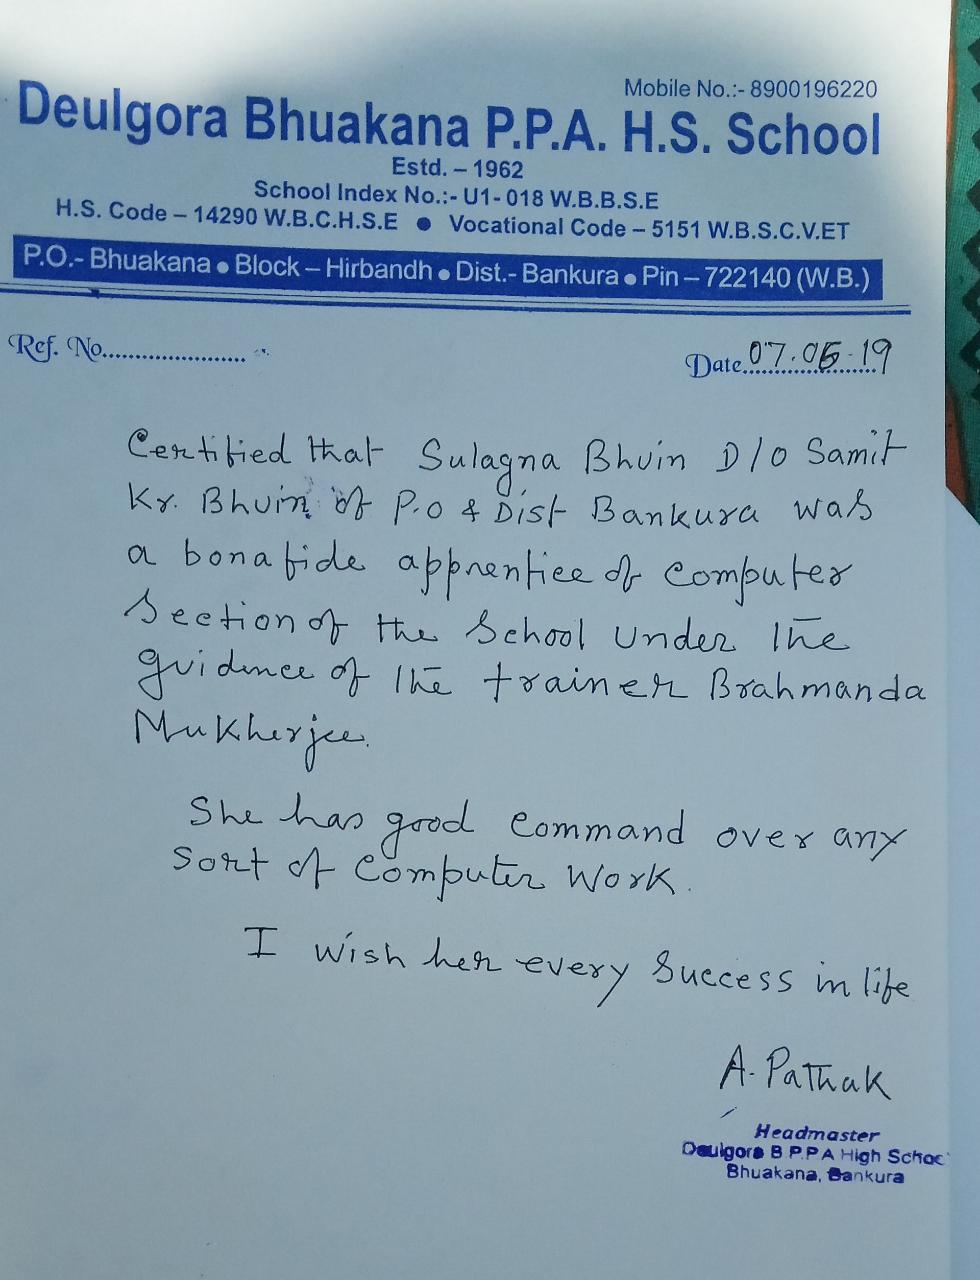 Mobile No.:- 8900196220
Deulgora Bhuakana P.P.A. H.S. School
Estd. – 1962
School Index No.:- U1- 018 W.B.B.S.E
H.S. Code – 14290 W.B.C.H.S.E ● Vocational Code – 5151 W.B.S.C.V.ET
P.O.- Bhuakana ● Block – Hirbandh ● Dist.- Bankura ● Pin – 722140 (W.B.)
Ref. No........................
Date 07.06.19
Certified that Sulagna Bhuin D/O Samit
Kr. Bhuin of P.O & Dist Bankura was
a bonafide apprentice of Computer
Section of the School under the
guidence of the trainer Brahmanda
Mukherjee.
She has good command over any
sort of Computer Work.
I wish her every success in life
A. Pathak
Headmaster
Deulgora B P.P A High Schoo
Bhuakana, Bankura